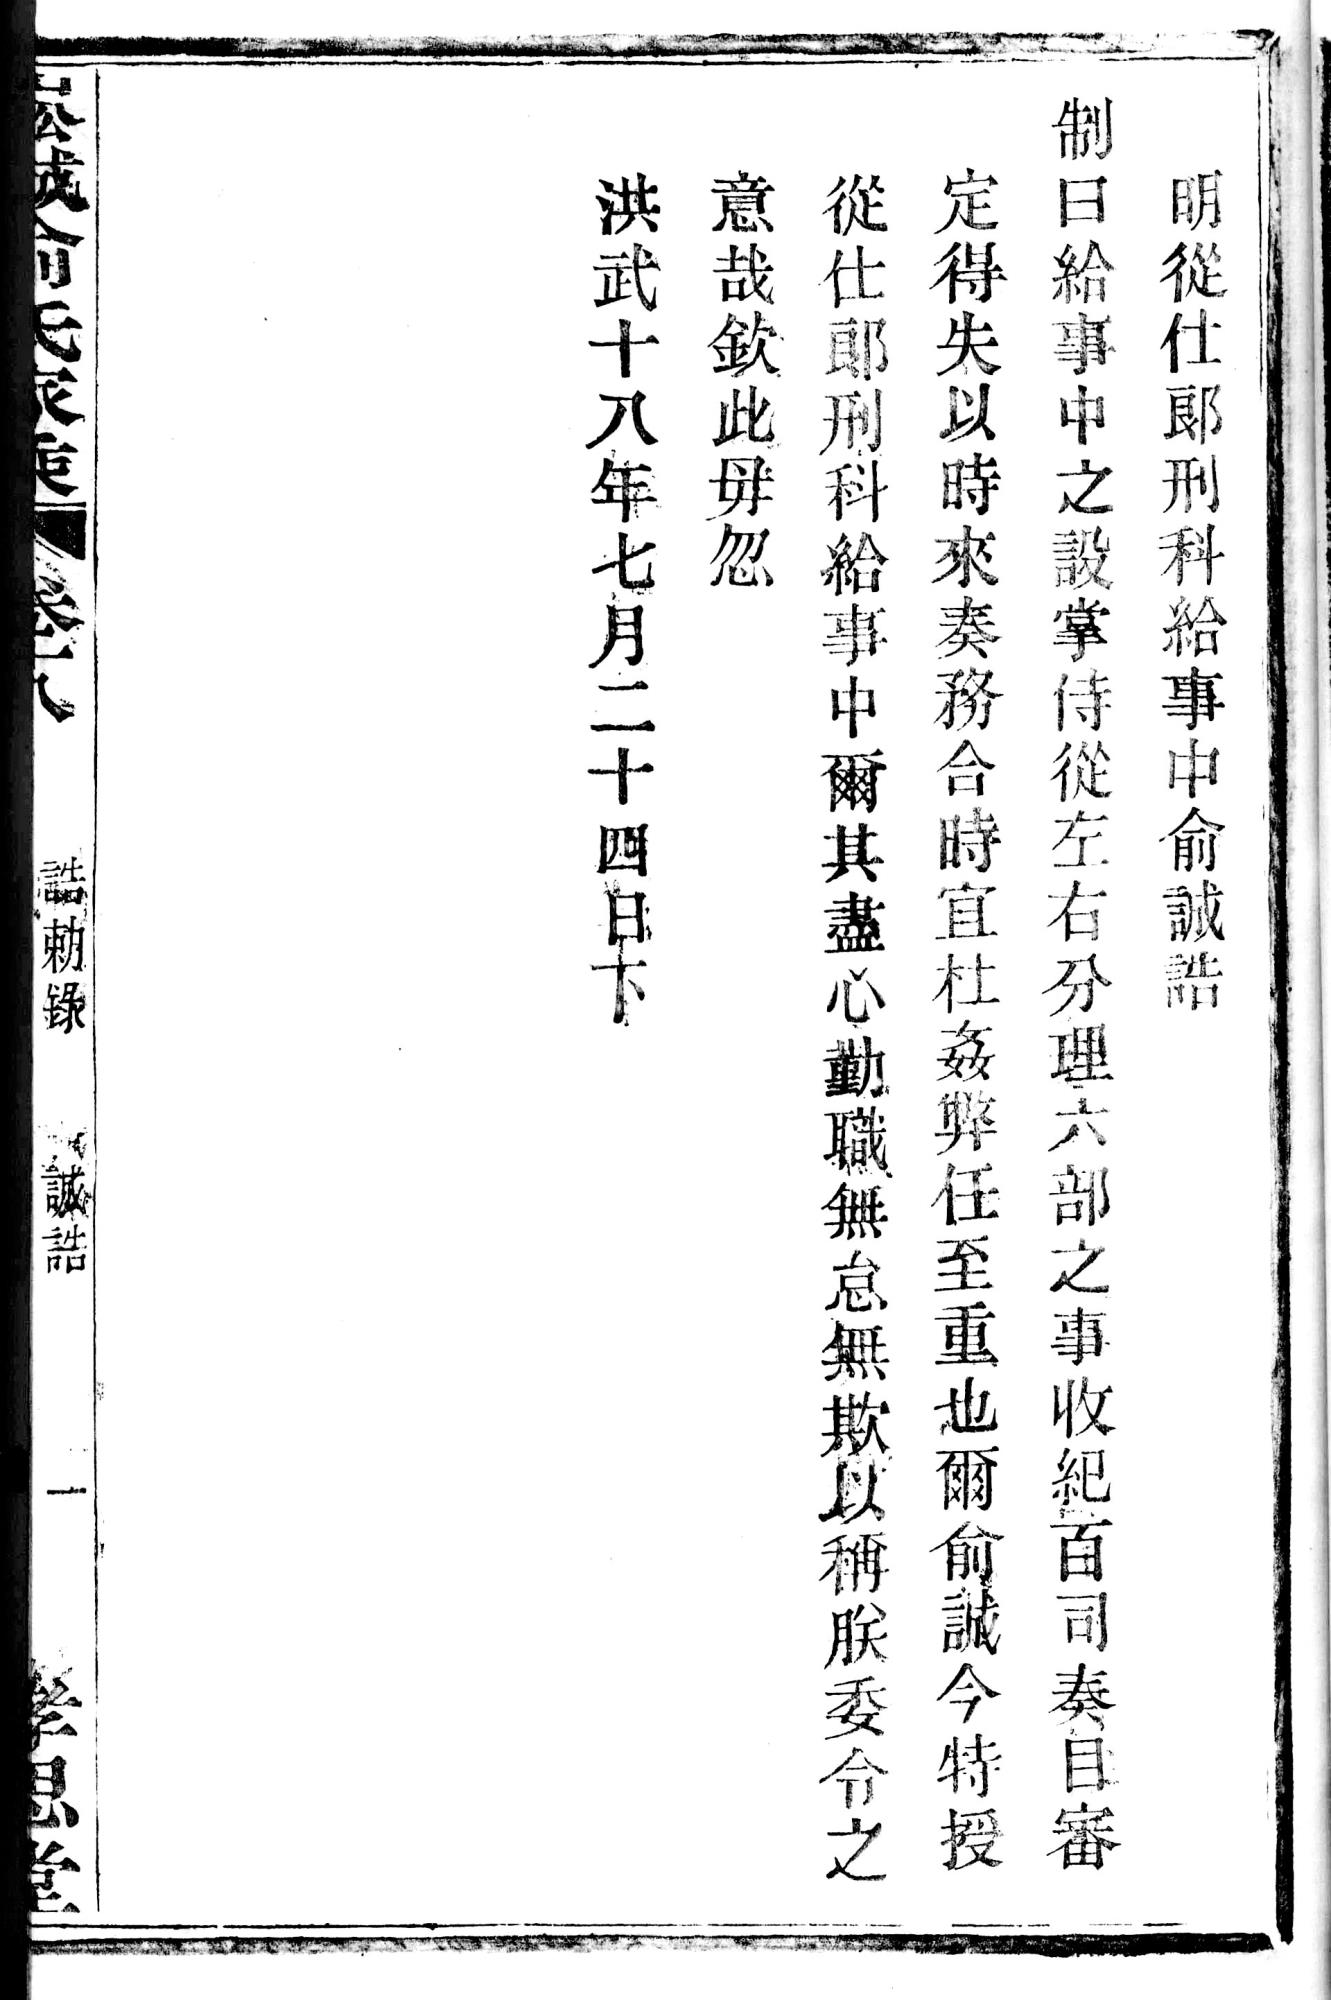 明從仕郎刑科給事中俞誠誥
制曰給事中之設掌侍從左右分理六部之事收紀百司奏目審
定得失以時來奏務合時宜杜姦弊任至重也爾俞誠今特授
從仕郎刑科給事中爾其盡心勤職無怠無欺以稱朕委令之
意哉欽此毋忽
洪武十八年七月二十四日下
城俞氏家乘 卷十八 誥勅錄 誠誥 一 孝思堂